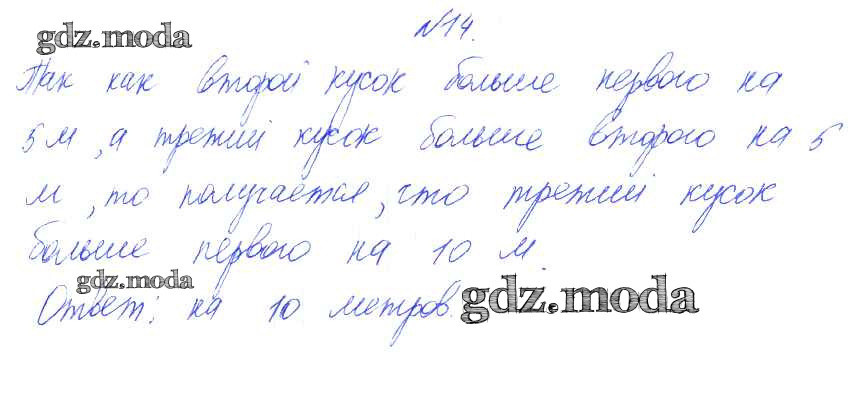 №14.
gdz.moda
Так как второй кусок больше первого на
5 м, а третий кусок больше второго на 5
м, то получается, что третий кусок
больше первого на 10 м.
gdz.moda
Ответ: на 10 метров.
gdz.moda